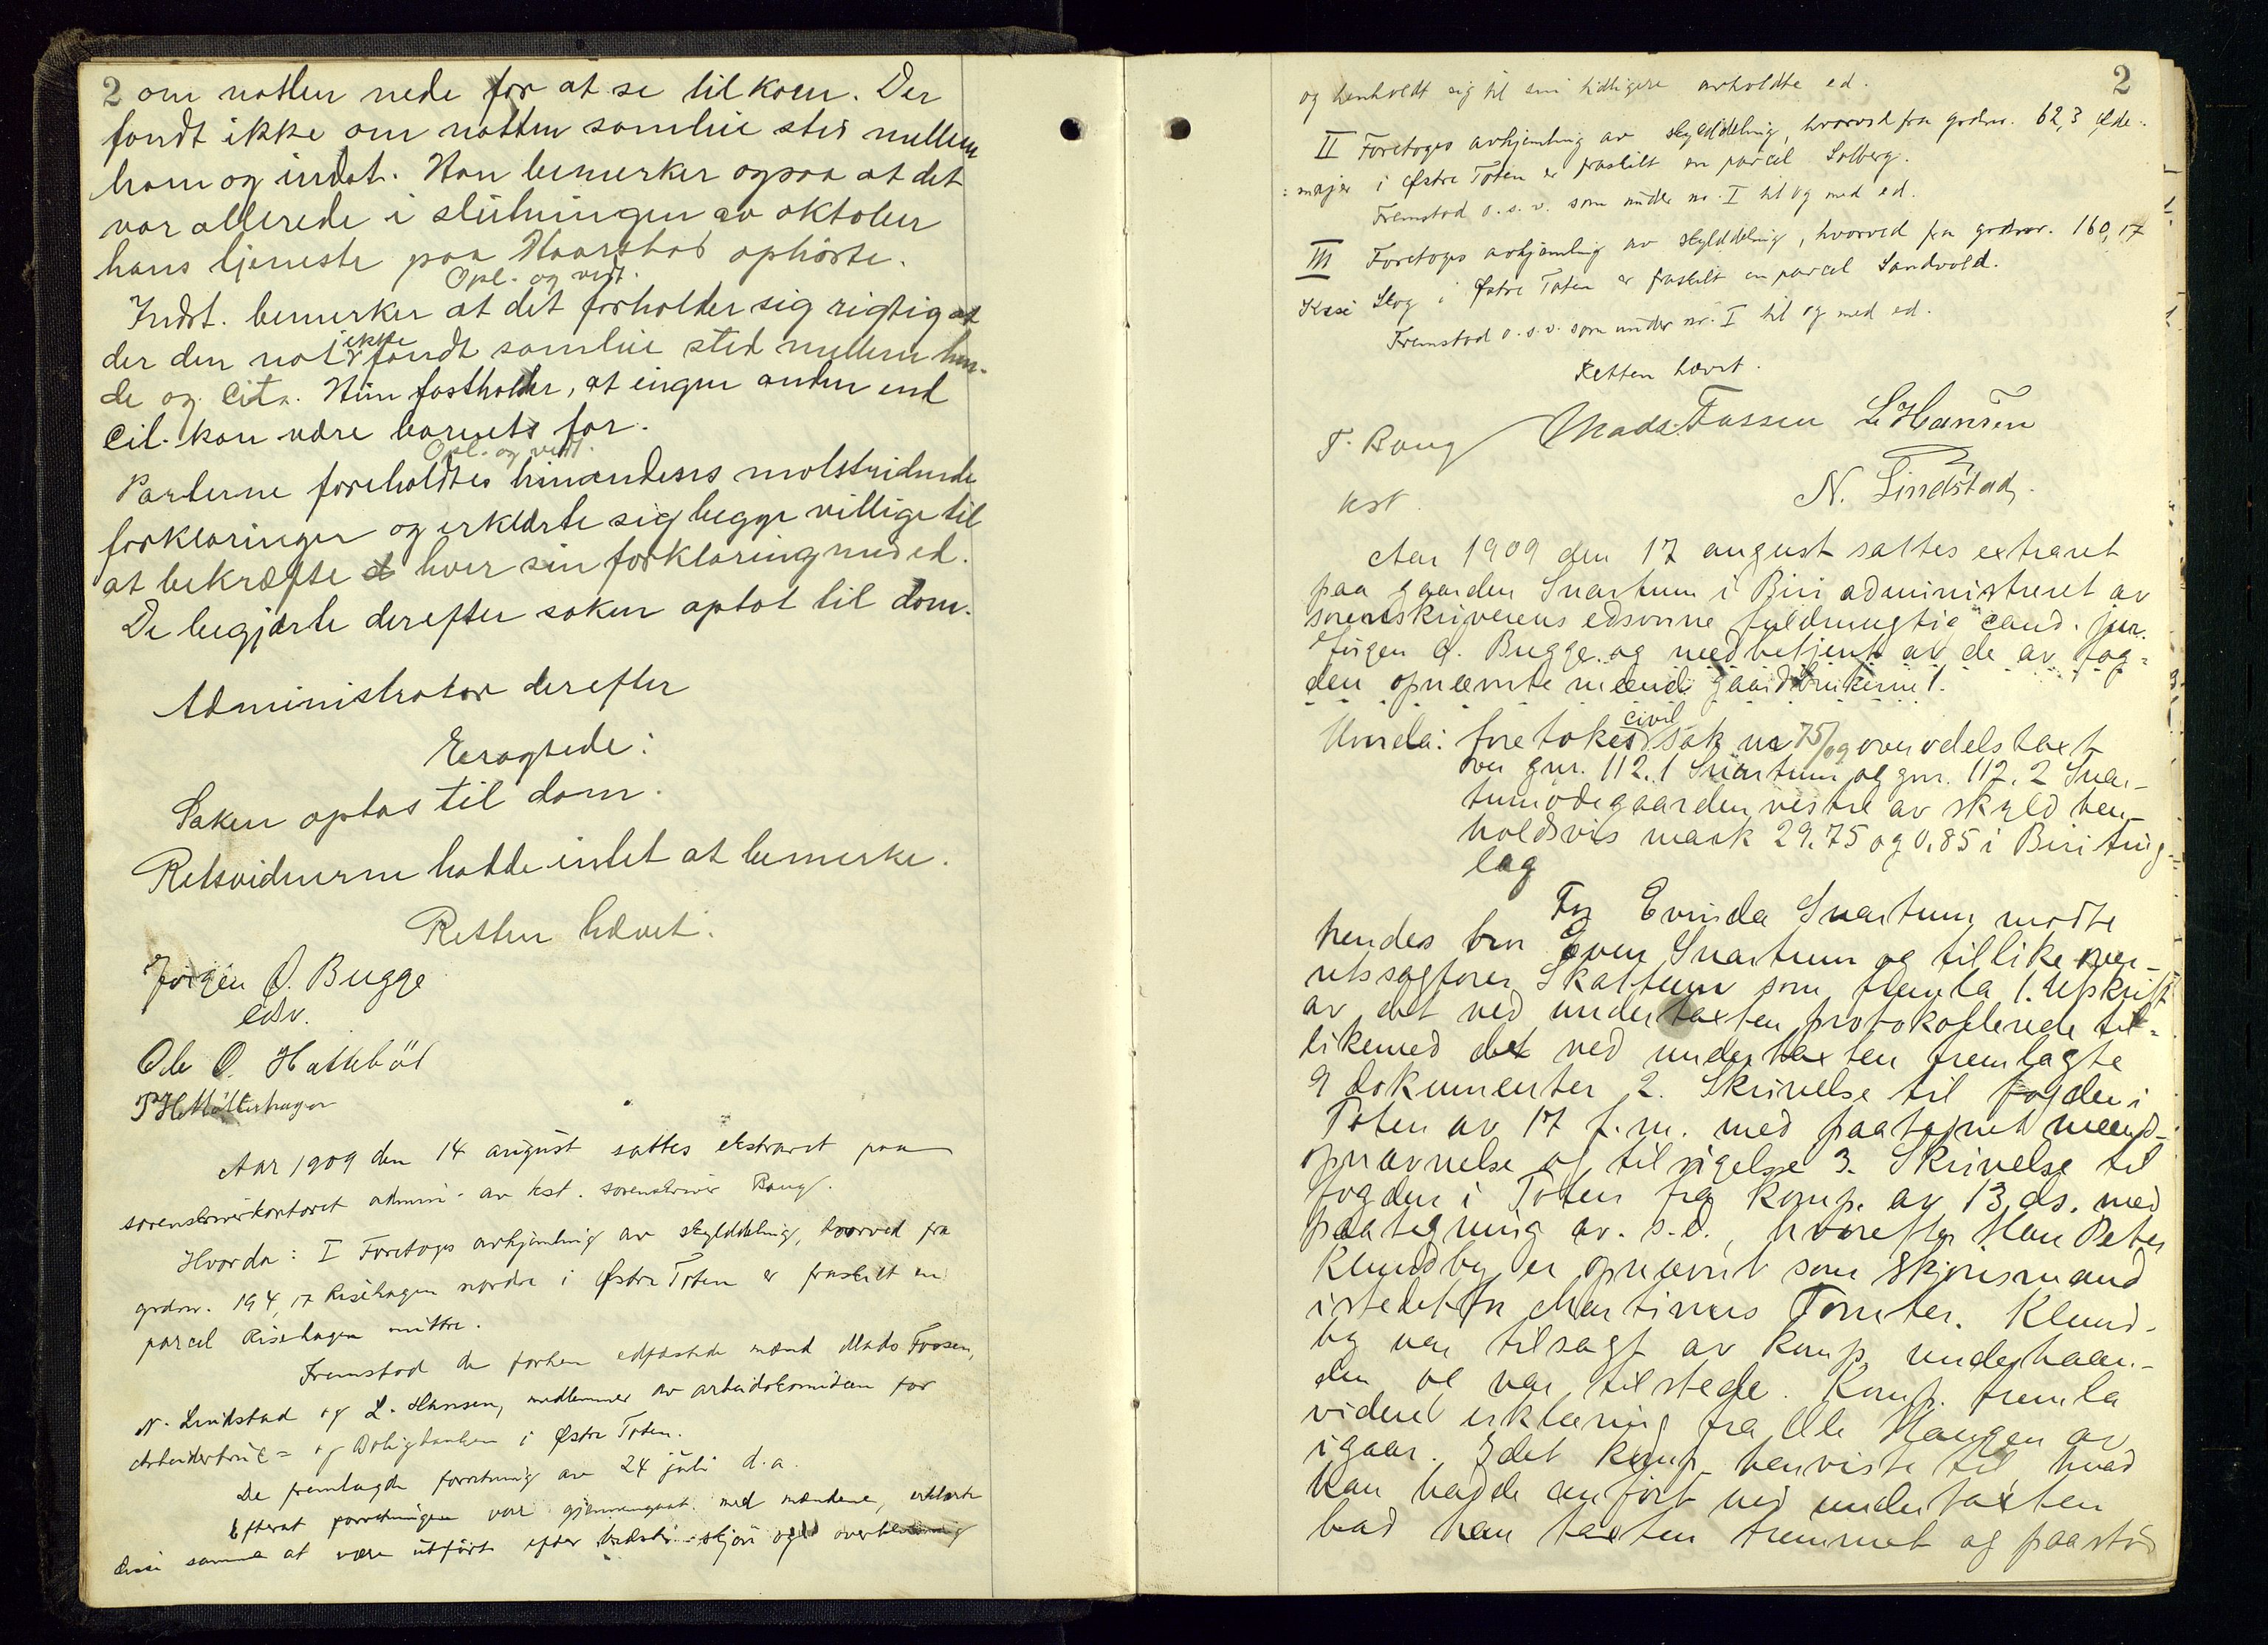 2 om natten nede for at se til koen. Der
fandt ikke om natten samleie sted mellem
ham og indst. Han bemerker ogsaa at det
var allerede i slutningen av oktober
hans tjeneste paa Haarstad ophørte.
Opl. og vedt.
Indst. bemerker at det forholder sig rigtig at
der den nat ikke fandt samleie sted mellem hen-
de og Cit. Hun fastholder, at ingen anden end
Cit. kan være barnets far.
Opl. og vedt.
Parterne foreholdtes hinandens motstridende
forklaringer og erklærte sig begge villige til
at bekræfte hver sin forklaring med ed.
De begjærte derefter saken optat til dom.
Administrator derefter
Eragtede:
Saken optas til dom.
Retsvidnerne hadde intet at bemerke.
Retten hævet.
Jørgen O. Bugge
edsv.
Ole O. Hattebøl
Aar 1909 den 14 august sattes ekstraret paa
sorenskriverkontoret admini- av kst. sorenskriver Baug.
Hvorda: I Foretoges avhjemling av skylddeling, hvorved fra
grdnr. 194,17 Risehagen nordre i Østre Toten er fraskilt en
parcel Risehagen mittre.
Fremstod de forhen edfæstede mænd Mads Fossen,
N. Lindstad og L. Hansen, medlemmer av arbeidskomiteen for
Arbeiderbruk- og Boligbanken i Østre Toten.
De fremlagde forretning av 24 juli d.a.
Efterat forretningen var gjennemgaat med mændene, erklærte
disse samme at være utført efter bedste skjøn og overbevisning
2
og henholdt sig til sin tidligere avholdte ed.
II Foretoges avhjemling av skylddeling, hvorved fra grdnr. 62,3 Øde-
majer i Østre Toten er fraskilt en parcel Solberg.
Fremstod o.s.v. som under no. I til og med ed.
III Foretoges avhjemling av skylddeling, hvorved fra grdnr. 160,17
Kise Skog i Østre Toten er fraskilt en parcel Sandvold.
Fremstod o.s.v. som under no. I til og med ed.
Retten hævet.
F. Baug Mads Fossen L Hansen
kst N. Lindstad.
Aar 1909 den 17 august sattes extraret
paa gaarden Svartum i Biri administreret av
sorenskriverens edsvorne fuldmægtig cand. jur.
Jørgen O. Bugge og medbetjent av de av fog-
den opnævnte mænd gaardbrukerne 1.
Hvorda: foretokes civil sak nr 75/09 overodelstaxt
over gnr. 112.1 Svartum og gnr. 112.2 Svar-
tumødegaarden vestre av skyld hen-
holdsvis mark 29.75 og 0,85 i Biri ting-
lag
For Evinda Svartum møtte
hendes bror Even Svartum og tillike over-
retssagfører Skattum som fremla 1. Utskrift
av det ved undertaxten protokollerede til-
likemed det ved undertaxten fremlagte
9 dokumenter 2. Skrivelse til fogden i
Toten av 17 f.m. med paategnet mænds-
opnævnelse og tilsigelse 3. Skrivelse til
fogden i Toten fra komp. av 13 ds. med
paategning av s.d., hvorefter Hans Peter
Klundby er opnævnt som skjønsmand
istedetfor Martinus Tomter. Klund-
by var tilsagt av komp. underhaan-
den og var tilstede. Komp. fremla
videre erklæring fra Ole Haugen av
igaar. Idet komp. henviste til hvad
han hadde anført ved undertaxten
bad han taxten fremmet og paastod